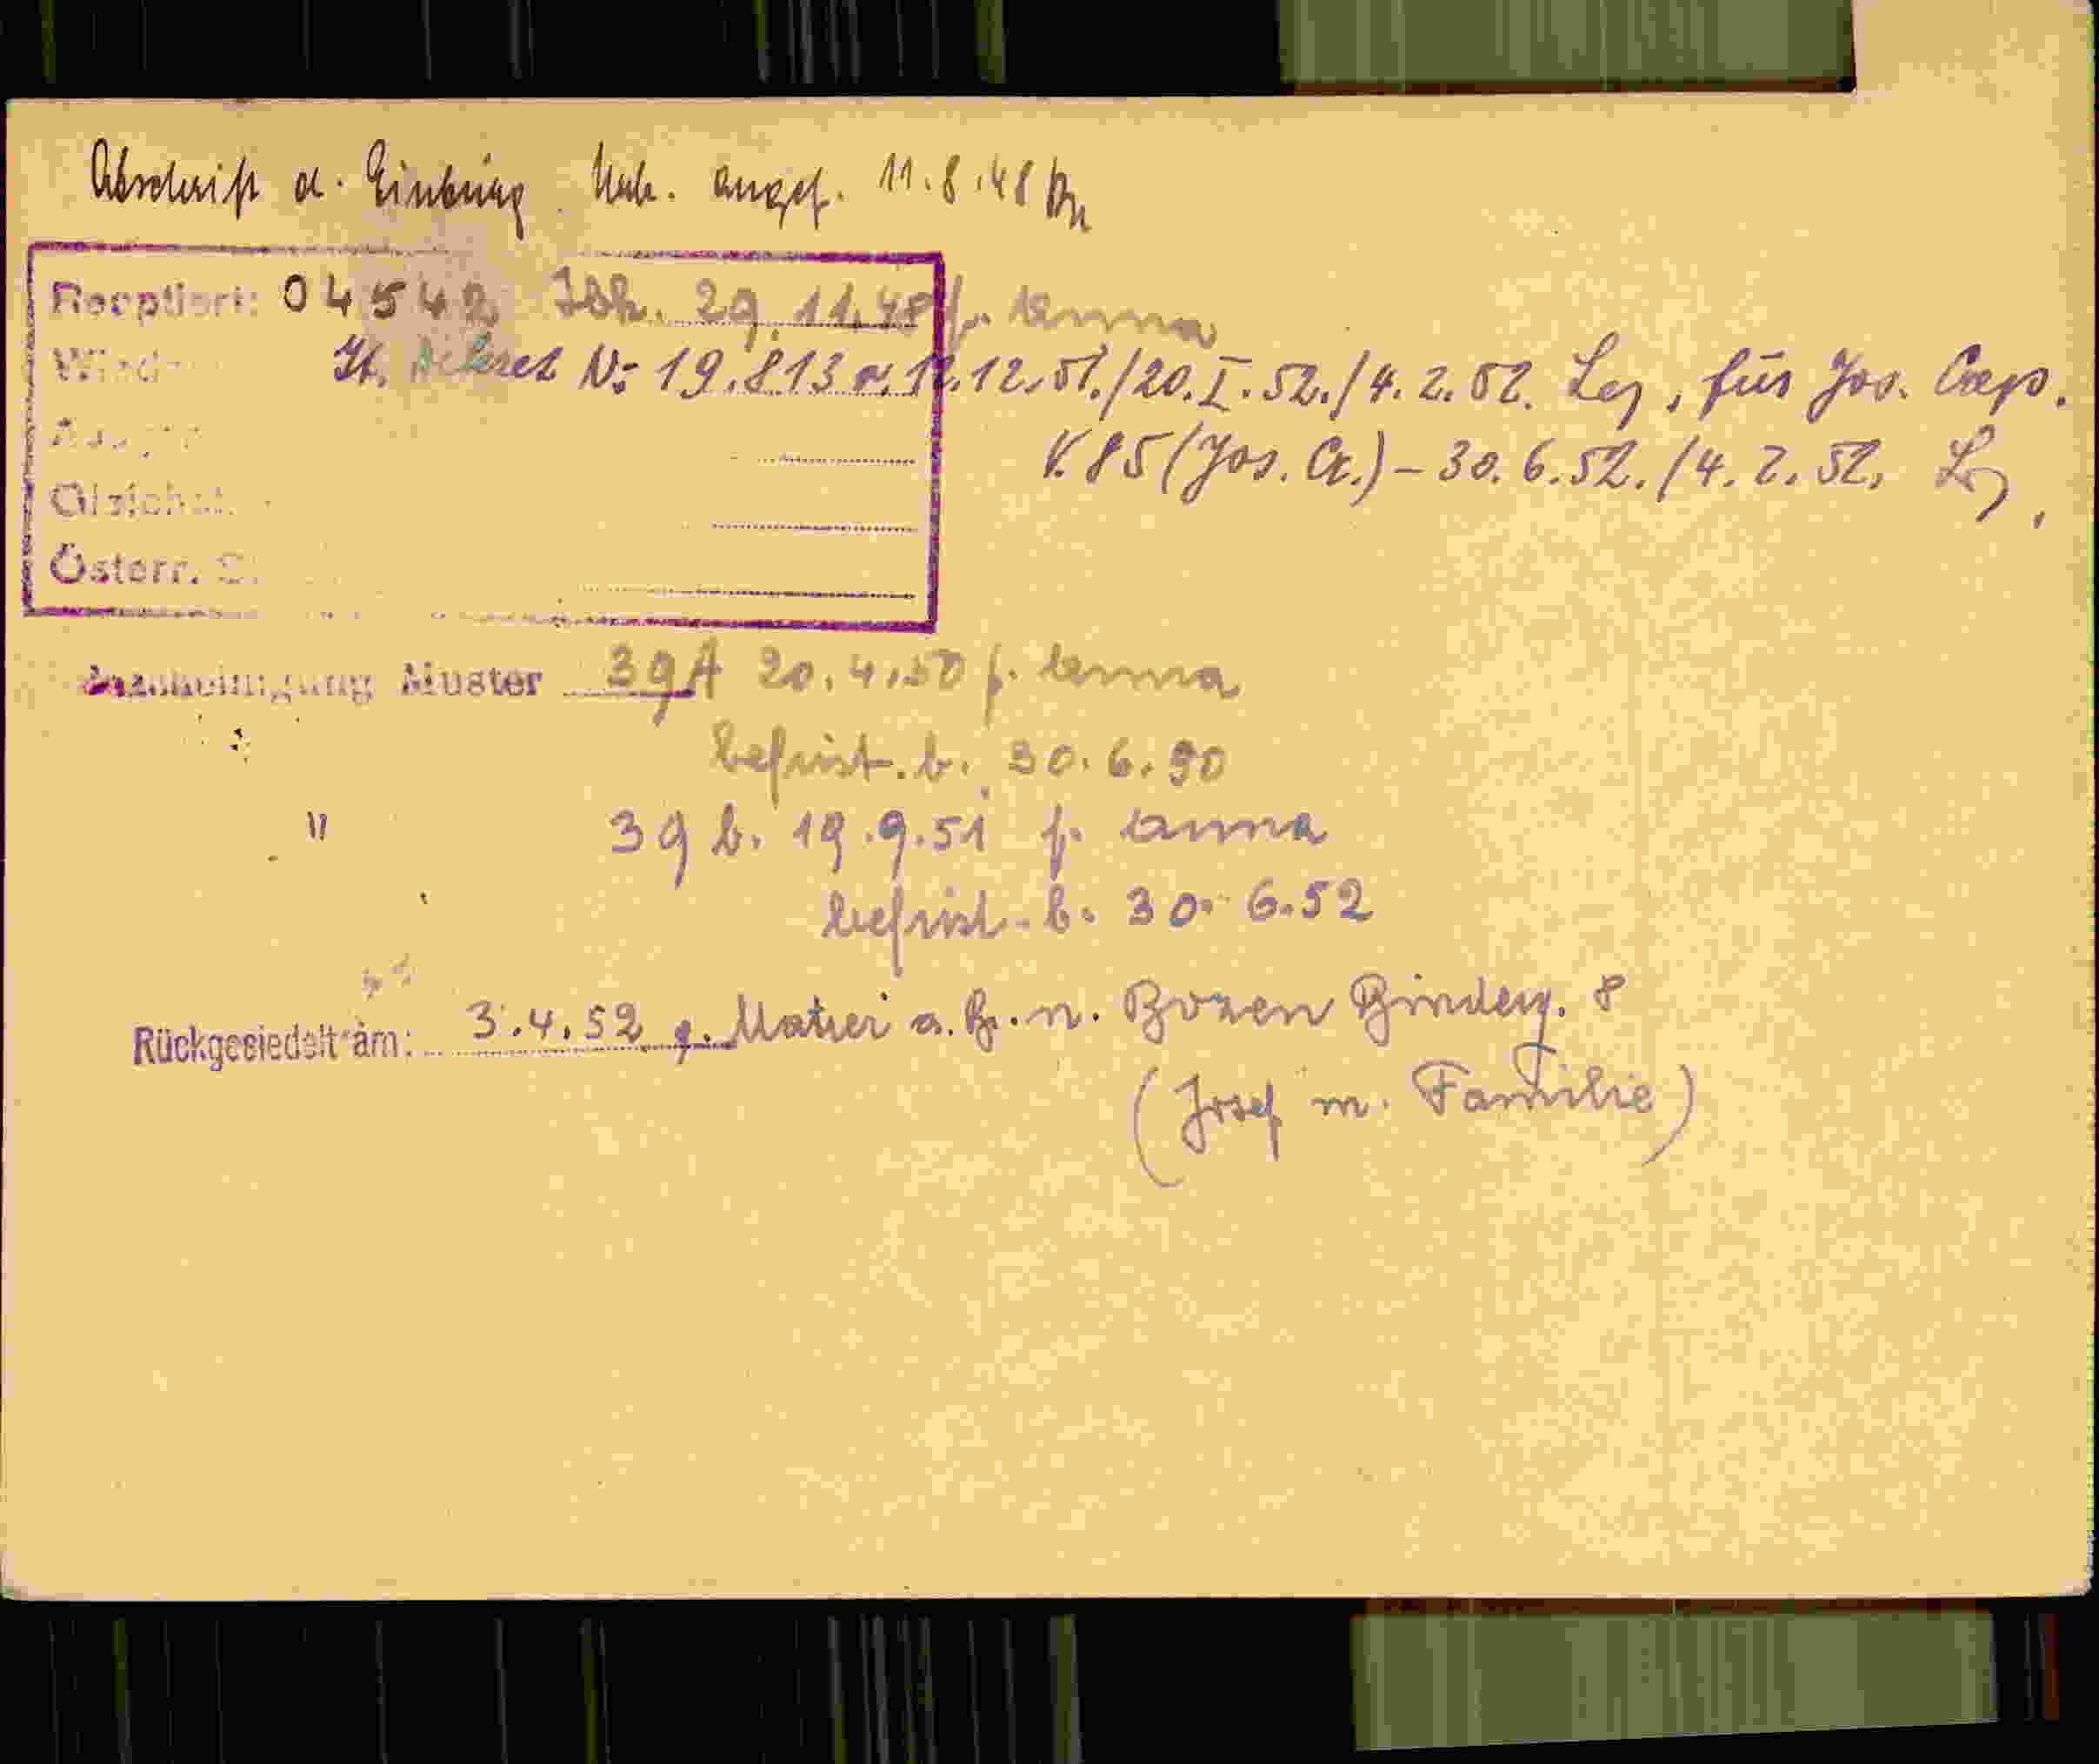 Abschrift d. Einbürg. Urk. angef. 11.8.48
Reoptiert: 04542 Ibk. 29.11.48 f. Anna
It. Dekret N: 19.813 v. 12.12.51./20.I.52./4.2.52. für Jos. Cap.
V. 85 (Jos. Ca.) – 30.6.52./4.2.52.
Österr.
Muster 39A 20.4.50 f. Anna
befrist. b. 30.6.50
" 39 b. 19.9.51 f. Anna
befrist. b. 30.6.52
Rückgesiedelt am: 3.4.52 Matrei a. Br. n. Bozen Binderg. 8
(Josef m. Familie)